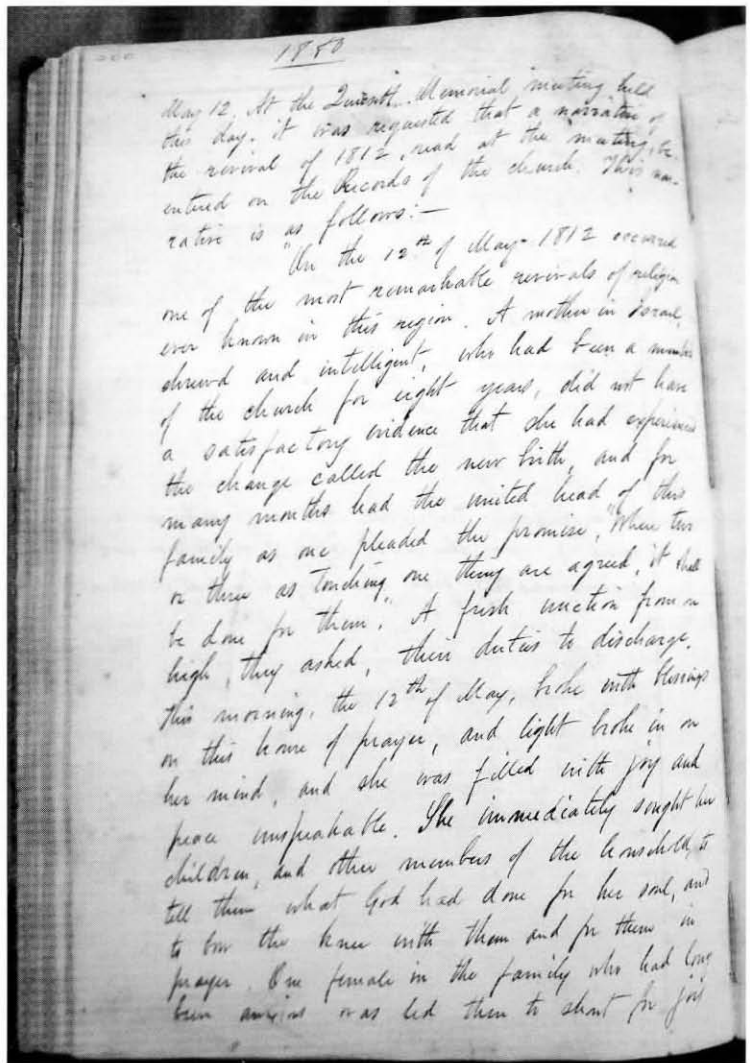 1880
May 12. At the Memorial meeting held
this day, it was requested that a narrative of
the revival of 1812, read at the meeting, be
entered on the Records of the church. This nar-
rative is as follows:—
"On the 12th of May 1812 occurred
one of the most remarkable revivals of religion
ever known in this region. A mother in Israel,
shrewd and intelligent, who had been a member
of the church for eight years, did not have
a satisfactory evidence that she had experienced
the change called the new birth, and for
many months had the united head of this
family as one pleaded the promise, "Where two
or three as touching one thing are agreed, it shall
be done for them." A fresh unction from on
high, they asked, their duties to discharge.
This morning, the 12th of May, broke with blessings
on this house of prayer, and light broke in on
her mind, and she was filled with joy and
peace unspeakable. She immediately sought her
children, and other members of the household, to
tell them what God had done for her soul, and
to bow the knee with them and for them in
prayer. One female in the family who had long
been anxious was led then to shout for joy